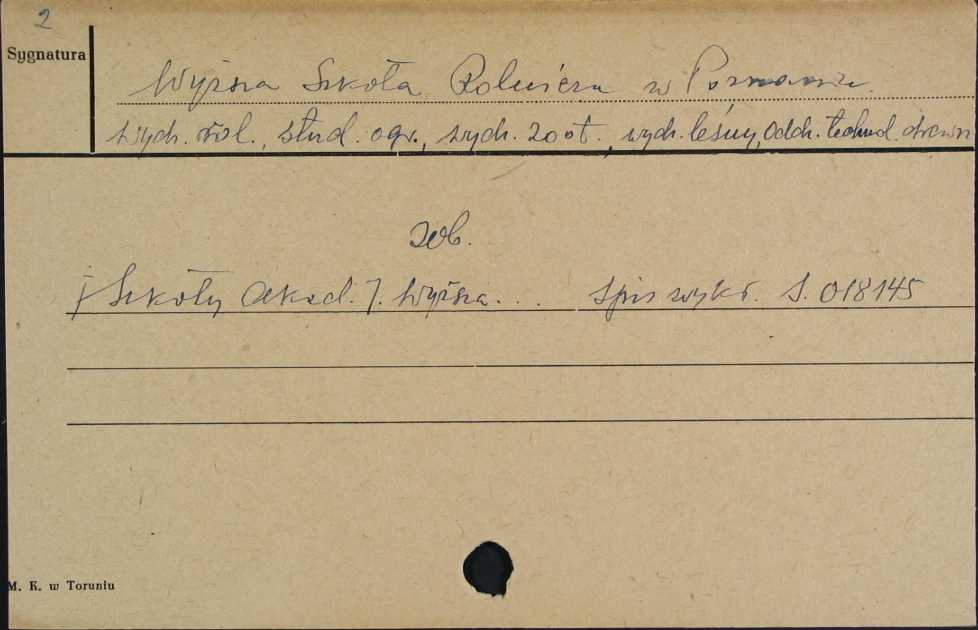 2
Sygnatura
Wyższa Szkoła Rolnicza w Poznaniu.
wydz. rol., stud. ogr., wydz. zoot., wydz. leśny, Oddz. technol. drewn
zob.
[Szkoły Akad.]. Wyższa... Spis wykł. S. 018145
M. K. w Toruniu